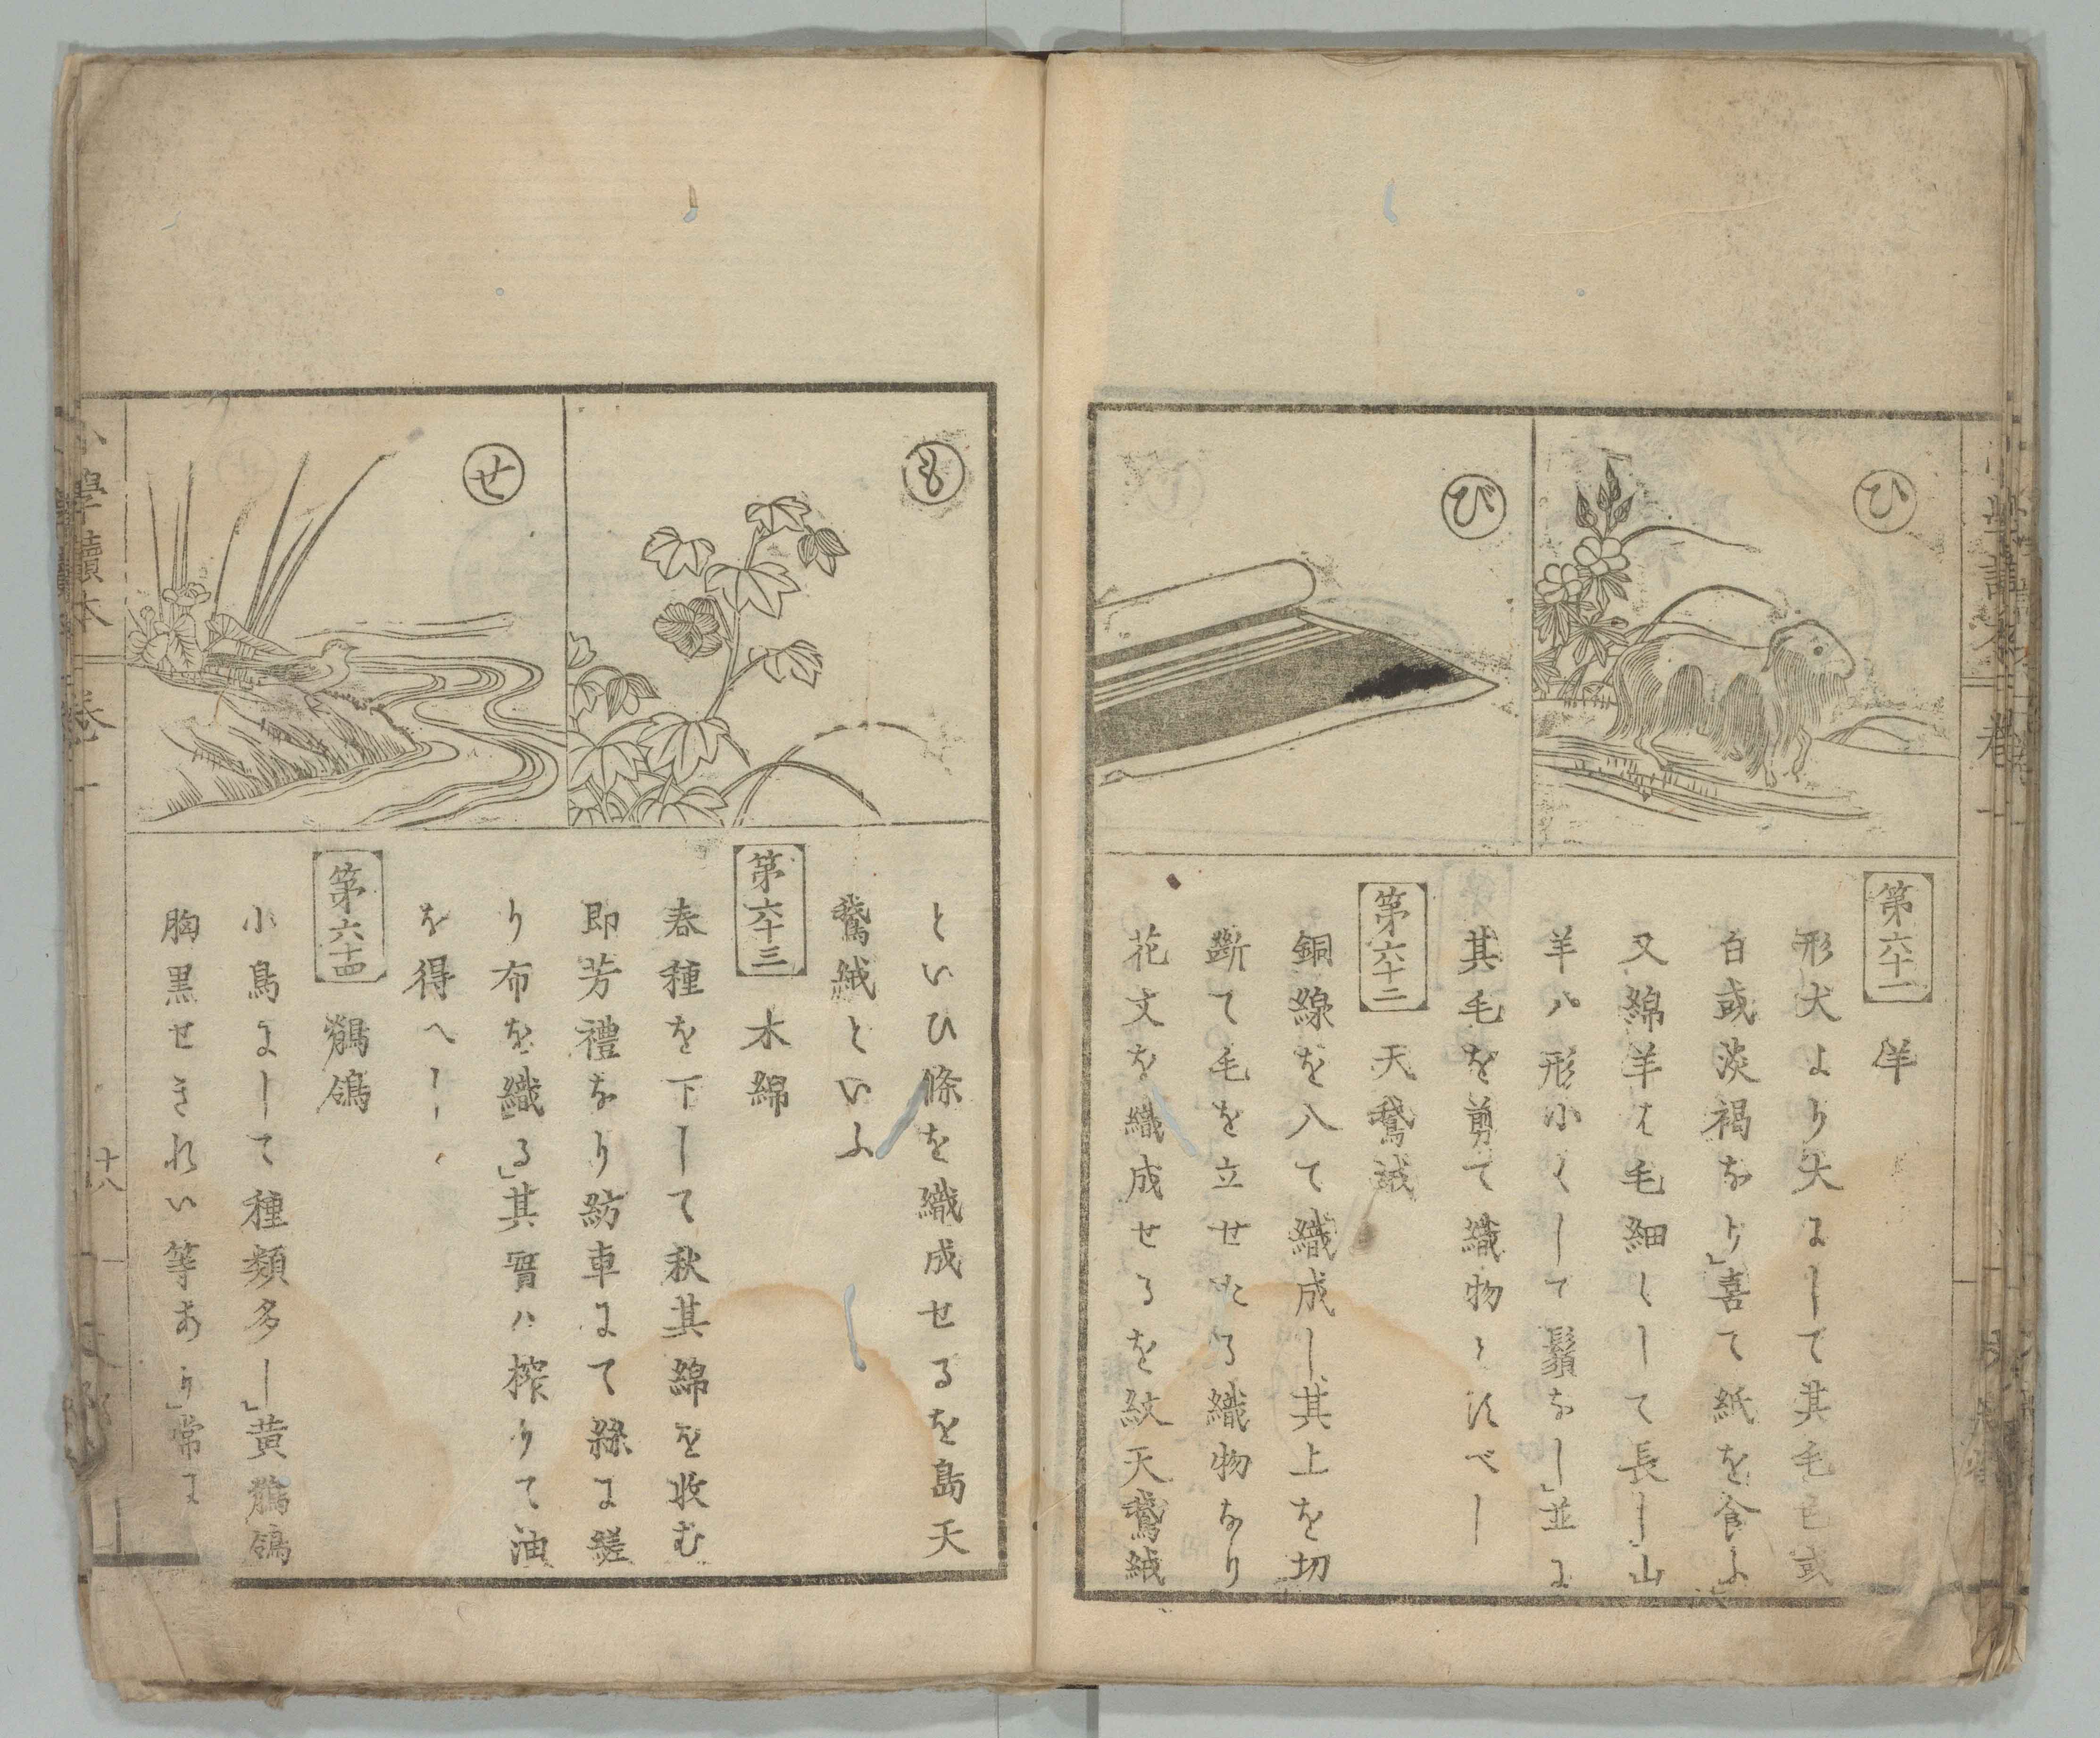 ひ
び
第六十一 羊
形犬より大にして其毛色或
白或淡褐なり」喜て紙を食ふ」
又綿羊は毛細くして長し」山
羊ハ形小くして鬚なし」並に
其毛を剪て織物とすべし
第六十二 天鵞絨
銅線を入て織成し其上を切
斷て毛を立せたる織物なり
花文を織成せるを紋天鵞絨
も
せ
といひ條を織成せるを島天
鵞絨といふ
第六十三 木綿
春種を下して秋其綿を收む
即芳禮なり紡車にて絲に縒
り布を織る」其實ハ搾りて油
を得へし
第六十四 鶺鴒
小鳥にして種類多し」黄鶺鴒
胸黒せきれい等あり」常に
小學讀本 卷一 十八